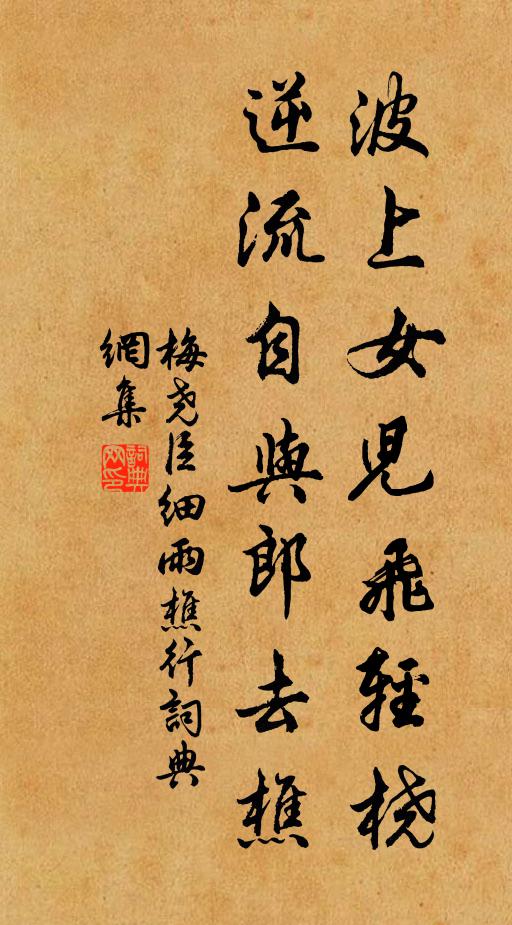 波上女児飛輕桡
逆流自與郎去樵
梅尧臣細雨樵行詞典
網集
詞典
网印